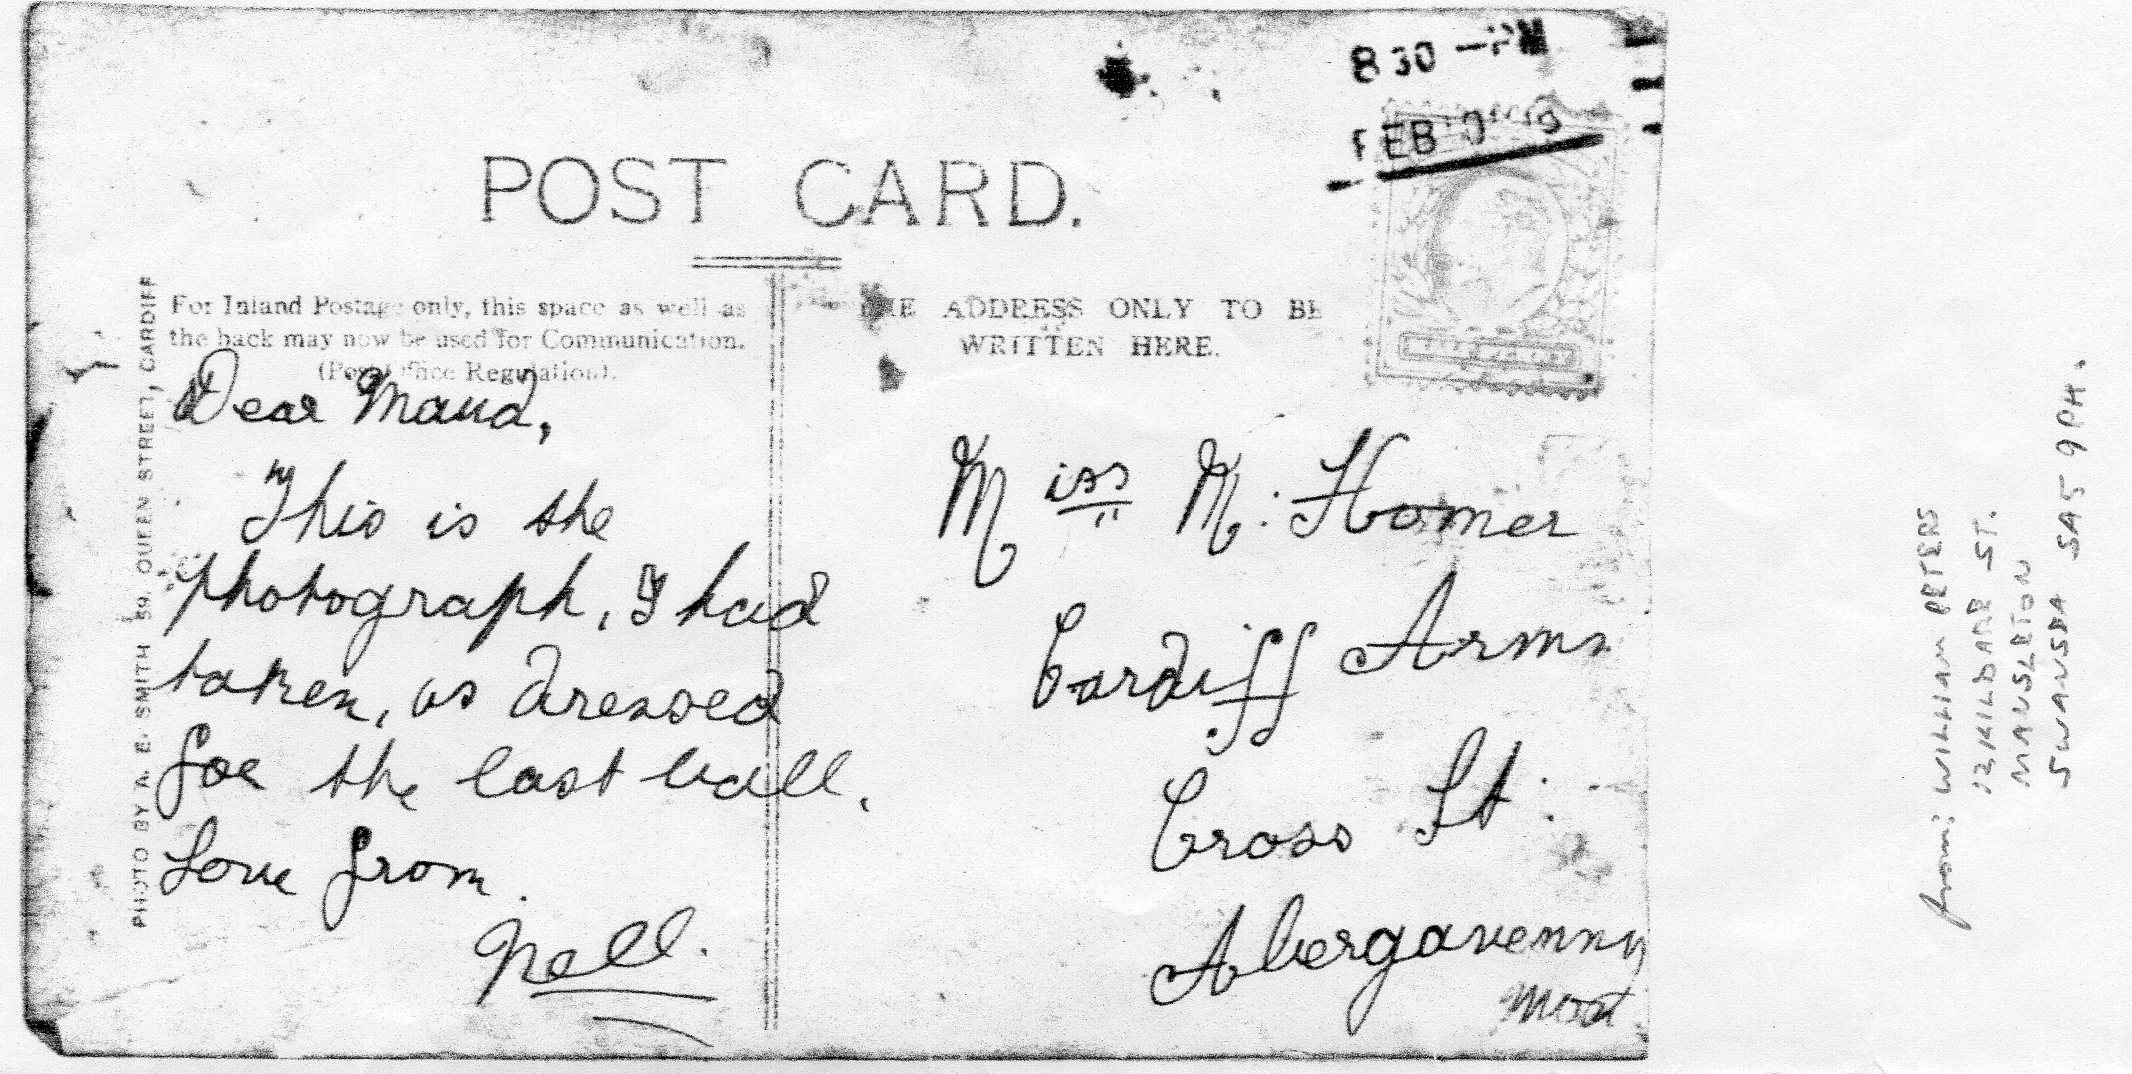 POST CARD.
8 30 - PM
FEB
PHOTO BY A. E. SMITH 59, QUEEN STREET, CARDIFF
For Inland Postage only, this space as well as
the back may now be used for Communication.
(Post Office Regulation).
THE ADDRESS ONLY TO BE
WRITTEN HERE.
Dear Maud,
This is the
photograph, I had
taken, as dressed
for the last ball.
Love from.
Nell.
Miss M: Homer
Cardiff Arms
Cross St:
Abergavenny
from: WILLIAM PETERS
12 KILDARE ST.
MANSELTON
SWANSEA SA5 9PH.